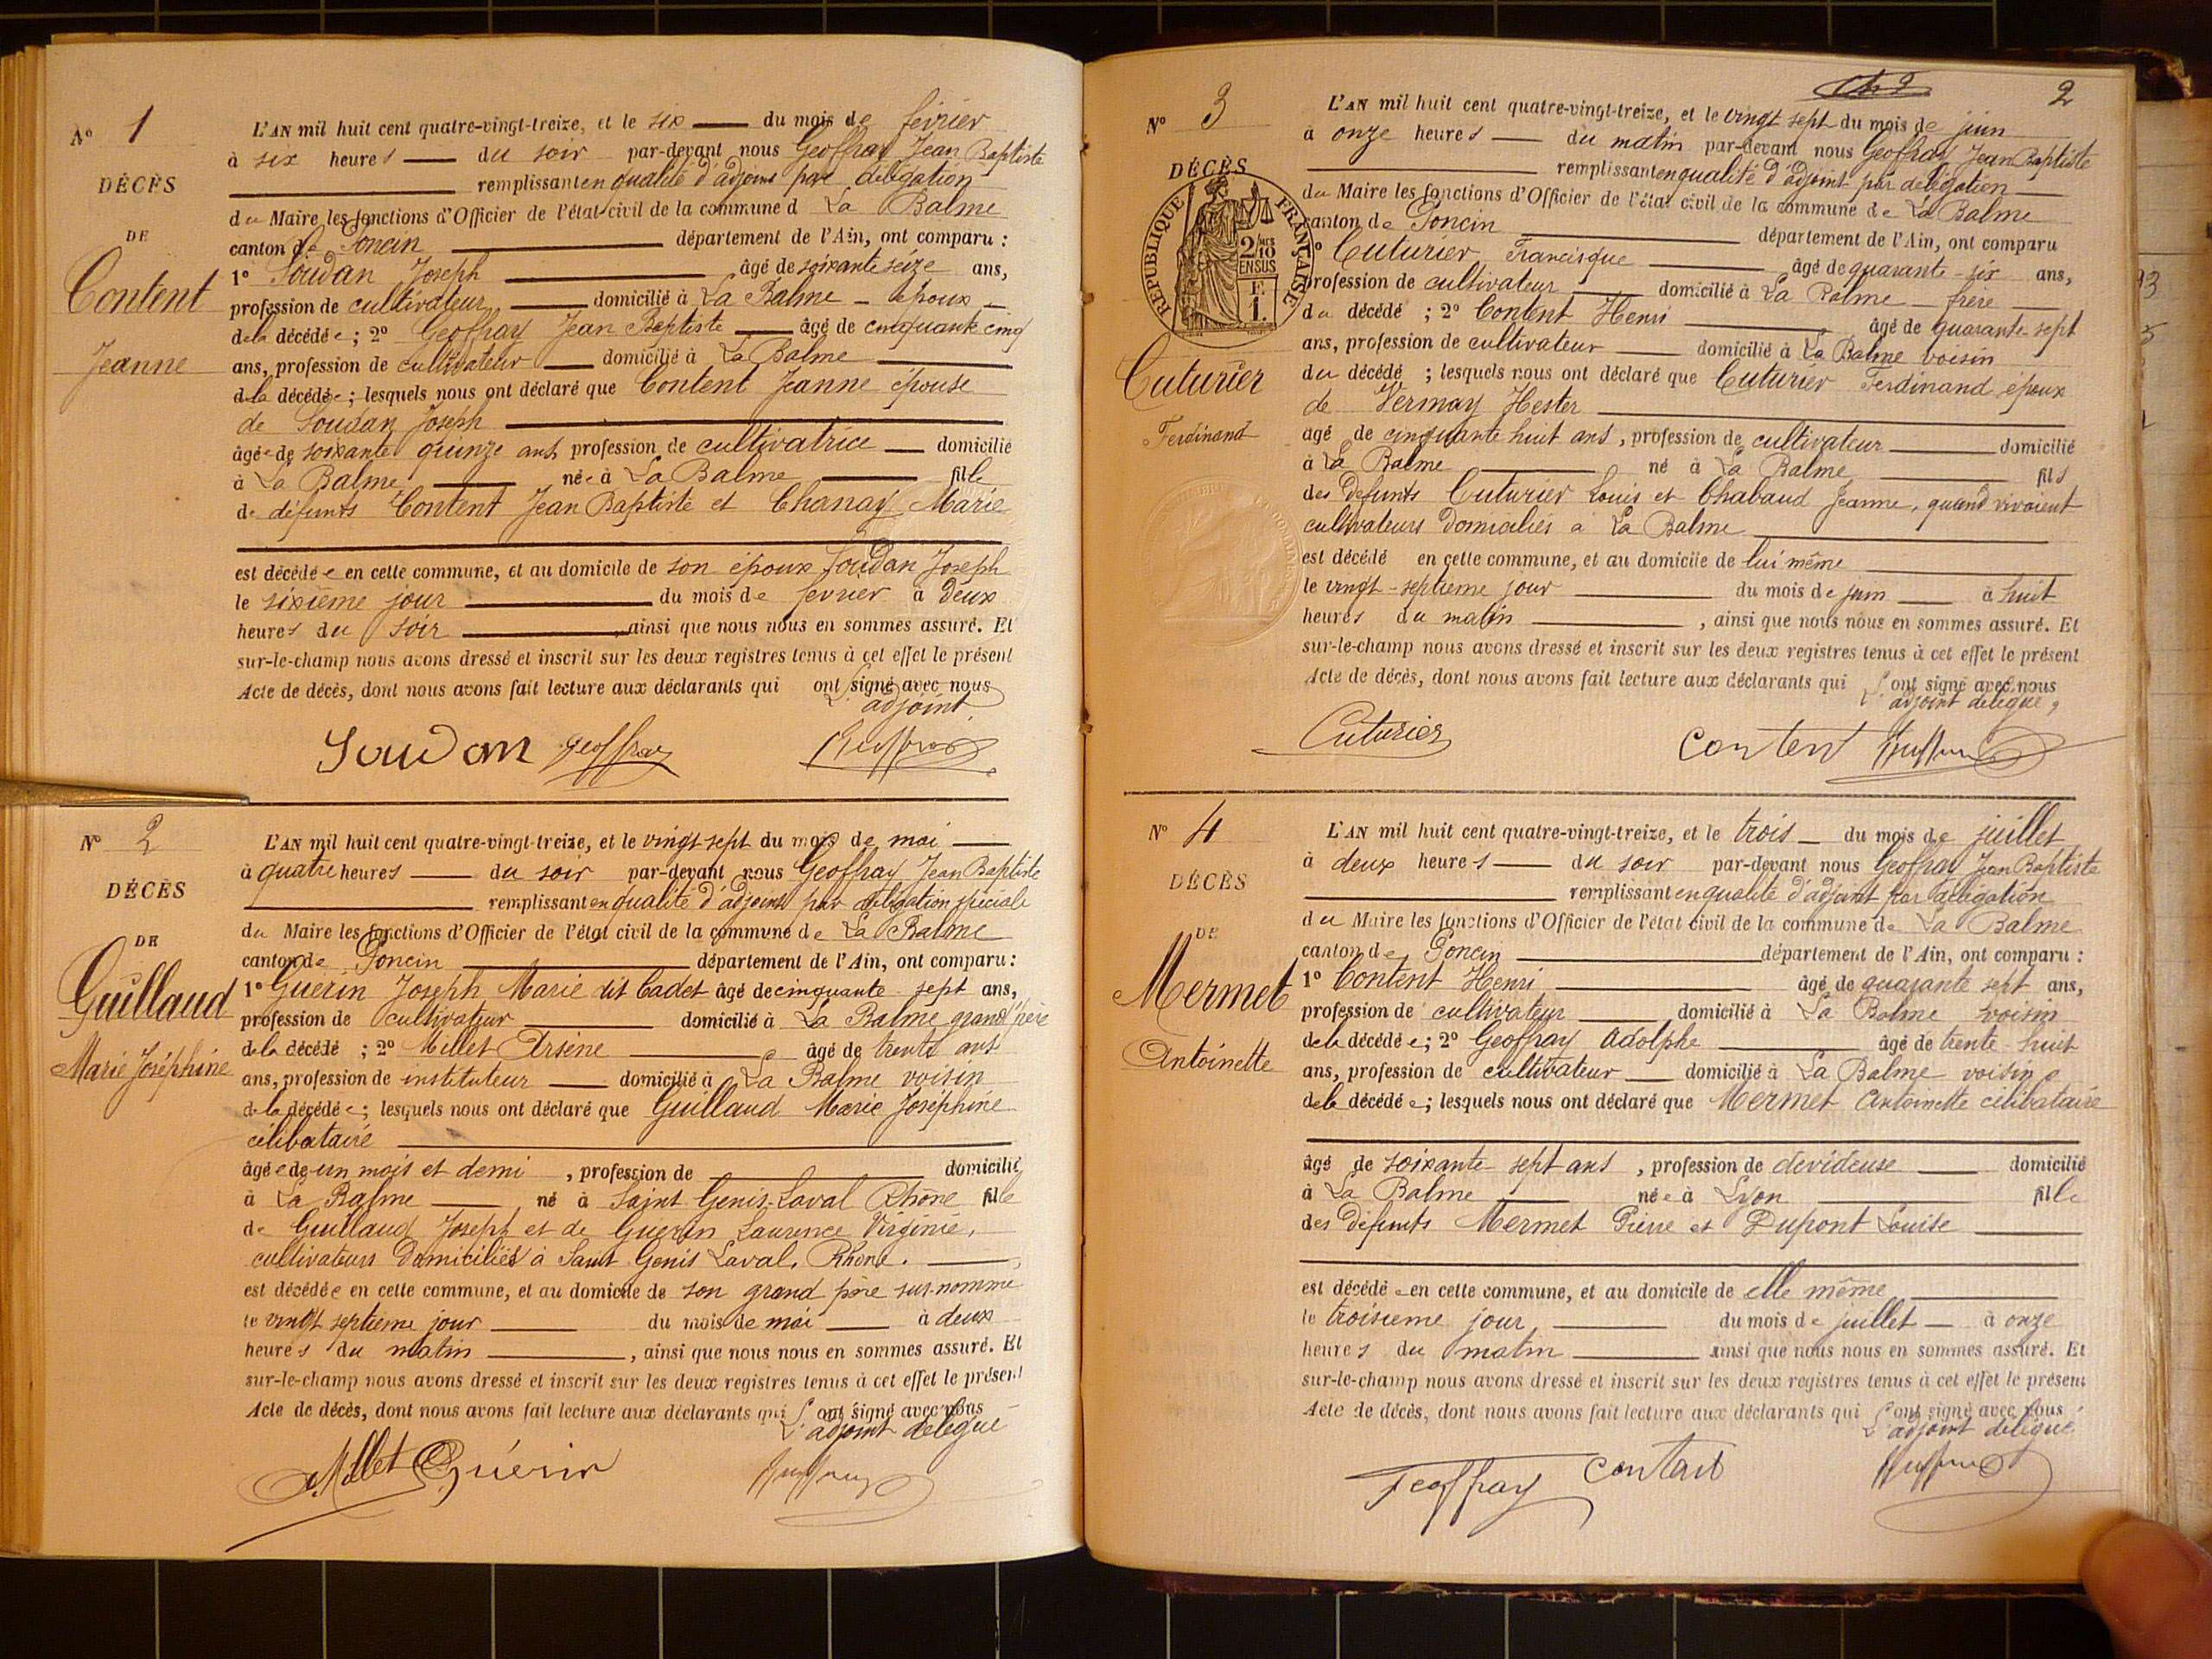 N° 1
DÉCÈS
DE
Content
Jeanne
L'AN mil huit cent quatre-vingt-treize, et le six du mois de février
à six heures du soir par-devant nous Geoffray Jean Baptiste
remplissant en qualité d'adjoint par délégation
du Maire les fonctions d'Officier de l'état civil de la commune d La Balme
canton de Poncin département de l'Ain, ont comparu :
1° Soudan Joseph âgé de soixante seize ans,
profession de cultivateur domicilié à La Balme - époux -
de la décédée ; 2° Geoffray Jean Baptiste âgé de cinquante cinq
ans, profession de cultivateur domicilié à La Balme
de la décédée ; lesquels nous ont déclaré que Content Jeanne épouse
de Soudan Joseph
âgée de soixante quinze ans profession de cultivatrice domicilié
à La Balme née à La Balme fille
de défunts Content Jean Baptiste et Chanay Marie
est décédée en cette commune, et au domicile de son époux Soudan Joseph
le sixième jour du mois de fevrier à deux
heures du soir , ainsi que nous nous en sommes assuré. Et
sur-le-champ nous avons dressé et inscrit sur les deux registres tenus à cet effet le présent
Acte de décès, dont nous avons fait lecture aux déclarants qui ont signé avec nous
L'adjoint,
Soudan Geoffray Geoffray
N° 2
DÉCÈS
DE
Guillaud
Marie Joséphine
L'AN mil huit cent quatre-vingt-treize, et le vingt sept du mois de mai
à quatre heures du soir par-devant nous Geoffray Jean Baptiste
remplissant en qualité d'adjoint par délégation spéciale
du Maire les fonctions d'Officier de l'état civil de la commune de La Balme
canton de Poncin département de l'Ain, ont comparu :
1° Guerin Joseph Marie dit Cadet âgé de cinquante sept ans,
profession de cultivateur domicilié à La Balme grand père
de la décédé ; 2° Millet Arsène âgé de trente ans
ans, profession de instituteur domicilié à La Balme voisin
de la décédée ; lesquels nous ont déclaré que Guillaud Marie Joséphine
célibataire
âgée de un mois et demi , profession de domicilié
à La Balme né à Saint Genis-Laval Rhône fille
de Guillaud Joseph et de Guerin Laurence Virginie,
cultivateurs domiciliés à Saint Genis Laval, Rhône.
est décédée en cette commune, et au domicile de son grand père sus-nommé
le vingt septieme jour du mois de mai à deux
heures du matin , ainsi que nous nous en sommes assuré. Et
sur-le-champ nous avons dressé et inscrit sur les deux registres tenus à cet effet le présent
Acte de décès, dont nous avons fait lecture aux déclarants qui ont signé avec nous
L'adjoint délégué
A. Millet Guérin Geoffray
2
N° 3
DÉCÈS
RÉPUBLIQUE FRANÇAISE
2/10 EN SUS
F. 1.
Cuturier
Ferdinand
L'AN mil huit cent quatre-vingt-treize, et le vingt sept du mois de juin
à onze heures du matin par-devant nous Geoffray Jean Baptiste
remplissant en qualité d'adjoint par délégation
du Maire les fonctions d'Officier de l'état civil de la commune de La Balme
canton de Poncin département de l'Ain, ont comparu
1° Cuturier Francisque âgé de quarante-six ans,
profession de cultivateur domicilié à La Balme - frère
du décédé ; 2° Content Henri âgé de quarante sept
ans, profession de cultivateur domicilié à La Balme voisin
du décédé ; lesquels nous ont déclaré que Cuturier Ferdinand époux
de Vermay Hester
âgé de cinquante huit ans, profession de cultivateur domicilié
à La Balme né à La Balme fils
des défunts Cuturier Louis et Chabaud Jeanne, quand vivaient
cultivateurs domiciliés à La Balme
est décédé en cette commune, et au domicile de lui même
le vingt-septieme jour du mois de juin à huit
heures du matin , ainsi que nous nous en sommes assuré. Et
sur-le-champ nous avons dressé et inscrit sur les deux registres tenus à cet effet le présent
Acte de décès, dont nous avons fait lecture aux déclarants qui ont signé avec nous
L'adjoint délégué,
Cuturier Content Geoffray
N° 4
DÉCÈS
DE
Mermet
Antoinette
L'AN mil huit cent quatre-vingt-treize, et le trois du mois de juillet
à deux heures du soir par-devant nous Geoffray Jean Baptiste
remplissant en qualité d'adjoint par délégation
du Maire les fonctions d'Officier de l'état civil de la commune de La Balme
canton de Poncin département de l'Ain, ont comparu :
1° Content Henri âgé de quarante sept ans,
profession de cultivateur domicilié à La Balme voisin
de la décédée ; 2° Geoffray Adolphe âgé de trente-huit
ans, profession de cultivateur domicilié à La Balme voisin
de la décédée ; lesquels nous ont déclaré que Mermet Antoinette célibataire
âgé de soixante-sept ans , profession de devideuse domicilié
à La Balme née à Lyon fille
des défunts Mermet Pierre et Dupont Louise
est décédée en cette commune, et au domicile de elle même
le troisieme jour du mois de juillet à onze
heures du matin ainsi que nous nous en sommes assuré. Et
sur-le-champ nous avons dressé et inscrit sur les deux registres tenus à cet effet le présent
Acte de décès, dont nous avons fait lecture aux déclarants qui ont signé avec nous
L'adjoint délégué
Geoffray Content Geoffray